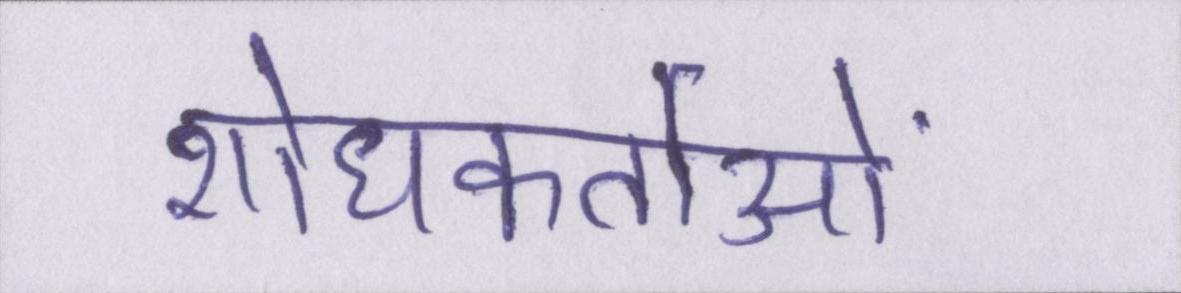 शोधकर्ताओं